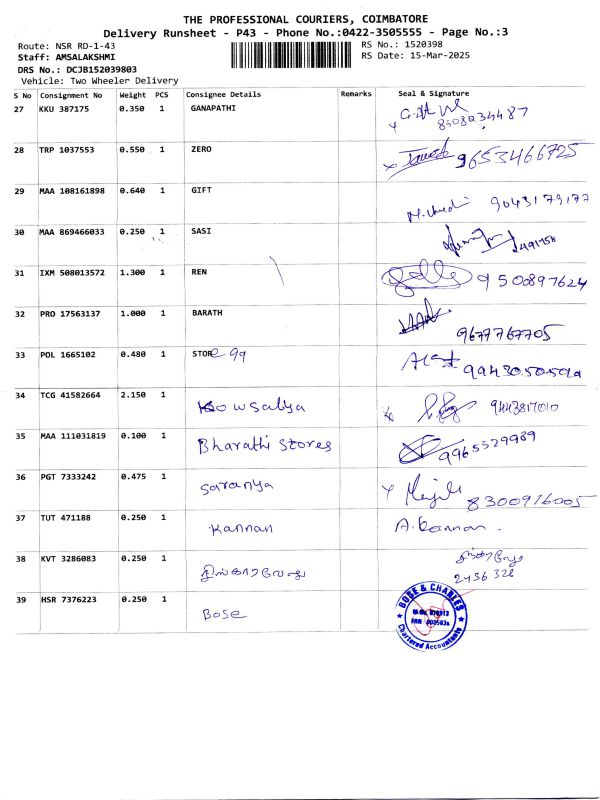 THE PROFESSIONAL COURIERS, COIMBATORE
Delivery Runsheet - P43 - Phone No.:0422-3505555 - Page No.:3
Route: NSR RD-1-43
RS No.: 1520398
Staff: AMSALAKSHMI
RS Date: 15-Mar-2025
DRS No.: DCJB152039803
Vehicle: Two Wheeler Delivery
S No Consignment No Weight PCS Consignee Details Remarks Seal & Signature
27 KKU 387175 0.350 1 GANAPATHI
28 TRP 1037553 0.550 1 ZERO 9653466725
29 MAA 108161898 0.640 1 GIFT 9043179177
30 MAA 869466033 0.250 1 SASI
31 IXM 508013572 1.300 1 REN 9500897624
32 PRO 17563137 1.000 1 BARATH 9677767705
33 POL 1665102 0.480 1 STORE 99
34 TCG 41582664 2.150 1 Kowsalya 9443817010
35 MAA 111031819 0.100 1 Bharathi Stores 9965329989
36 PGT 7333242 0.475 1 Saranya 8300916005
37 TUT 471188 0.250 1 Kannan A. Kannan.
38 KVT 3286083 0.250 1
2436 322
39 HSR 7376223 0.250 1 Bose BOSE & CHARLES
Chartered Accountants